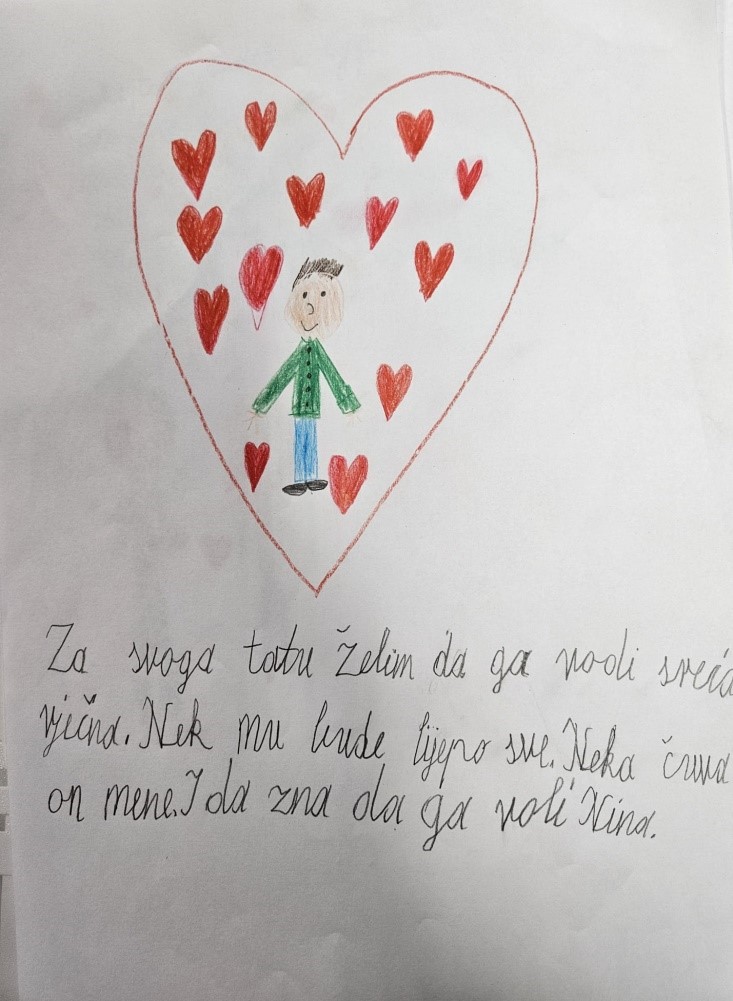 Za svoga tatu želim da ga vodi sreća
vječna. Nek mu bude lijepo sve. Neka čuva
on mene. I da zna da ga voli Nina.